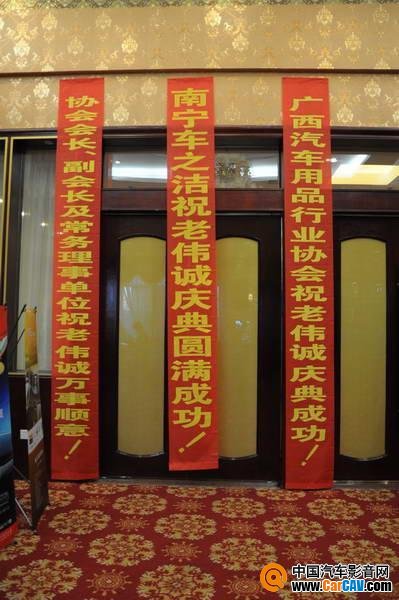 协会会长、副会长及常务理事单位祝老伟诚万事顺意！
南宁车之洁祝老伟诚庆典圆满成功！
广西汽车用品行业协会祝老伟诚庆典成功！
中国汽车影音网
www.CarCAV.com